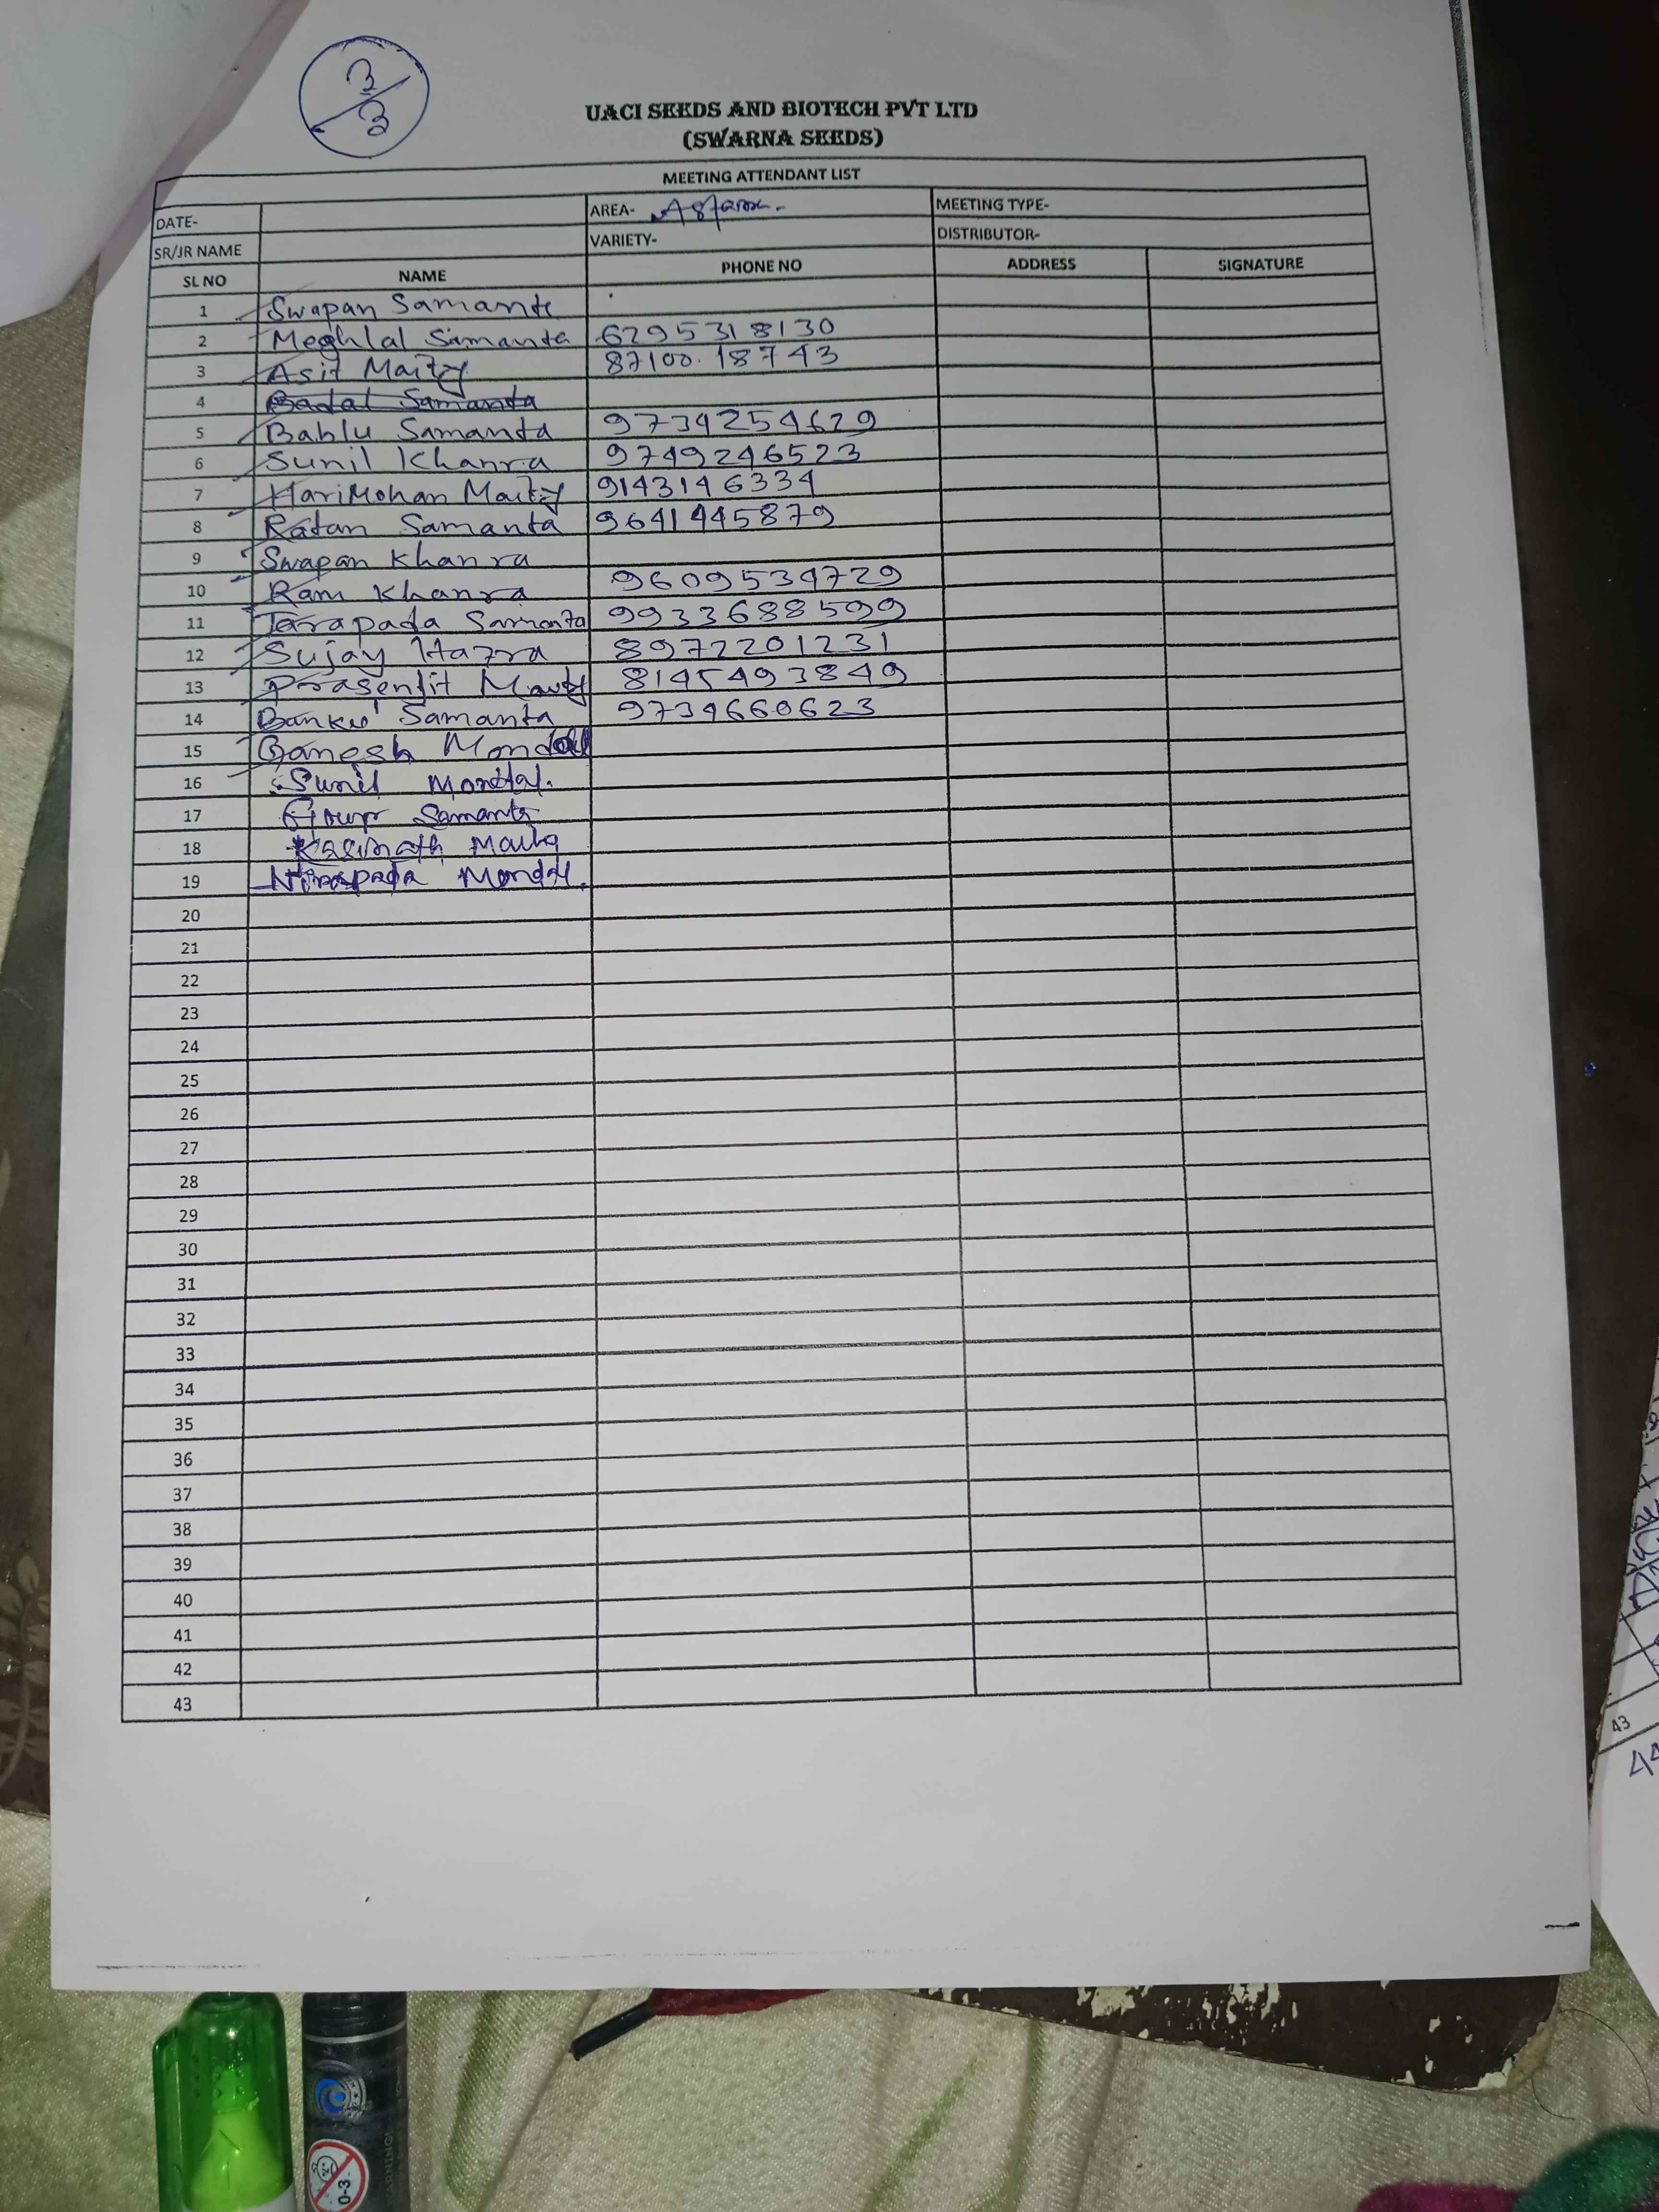 3/3
UACI SEEDS AND BIOTECH PVT LTD
(SWARNA SEEDS)
MEETING ATTENDANT LIST
DATE- AREA- MEETING TYPE-
SR/JR NAME VARIETY- DISTRIBUTOR-
SL NO NAME PHONE NO ADDRESS SIGNATURE
1 Swapan Samante
2 Meghlal Samanta 6295318130
3 Asit Maity 87100.18743
4 Badal Samanta
5 Bablu Samanta 9734254629
6 Sunil Khanra 9749246523
7 HariMohan Maity 9143146334
8 Ratan Samanta 9641445879
9 Swapan Khanra
10 Ram Khanra 9609534729
11 Tarapada Samanta 9933688599
12 Sujay Hazra 8972201231
13 Prasenjit Maity 8145493849
14 Banku Samanta 9734660623
15 Ganesh Mondal
16 Sunil Mondal.
17 Gour Samanta
18 Kasinath Maity
19 Nirapada Mondal.
20
21
22
23
24
25
26
27
28
29
30
31
32
33
34
35
36
37
38
39
40
41
42
43
43
44
0-3
WARNING!